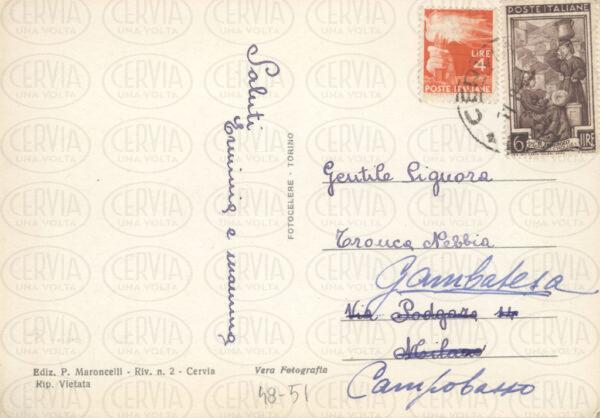 Saluti
Erminia e mamma
FOTOCELERE - TORINO
LIRE
4
POSTE ITALIANE
POSTE ITALIANE
6 LIRE
Gentile Signora
Tronca Nebbia
Gambatesa
Via Podgora 11
Milano
Campobasso
Ediz. P. Maroncelli - Riv. n. 2 - Cervia
Rip. Vietata
Vera Fotografia
48-51
CERVIA
UNA VOLTA